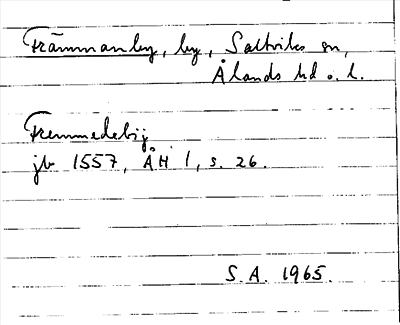 Främmanby, by, Saltviks sn,
Ålands hd o. l.
Fremmedebij
jb 1557, ÅH 1, s. 26.
S.A. 1965.